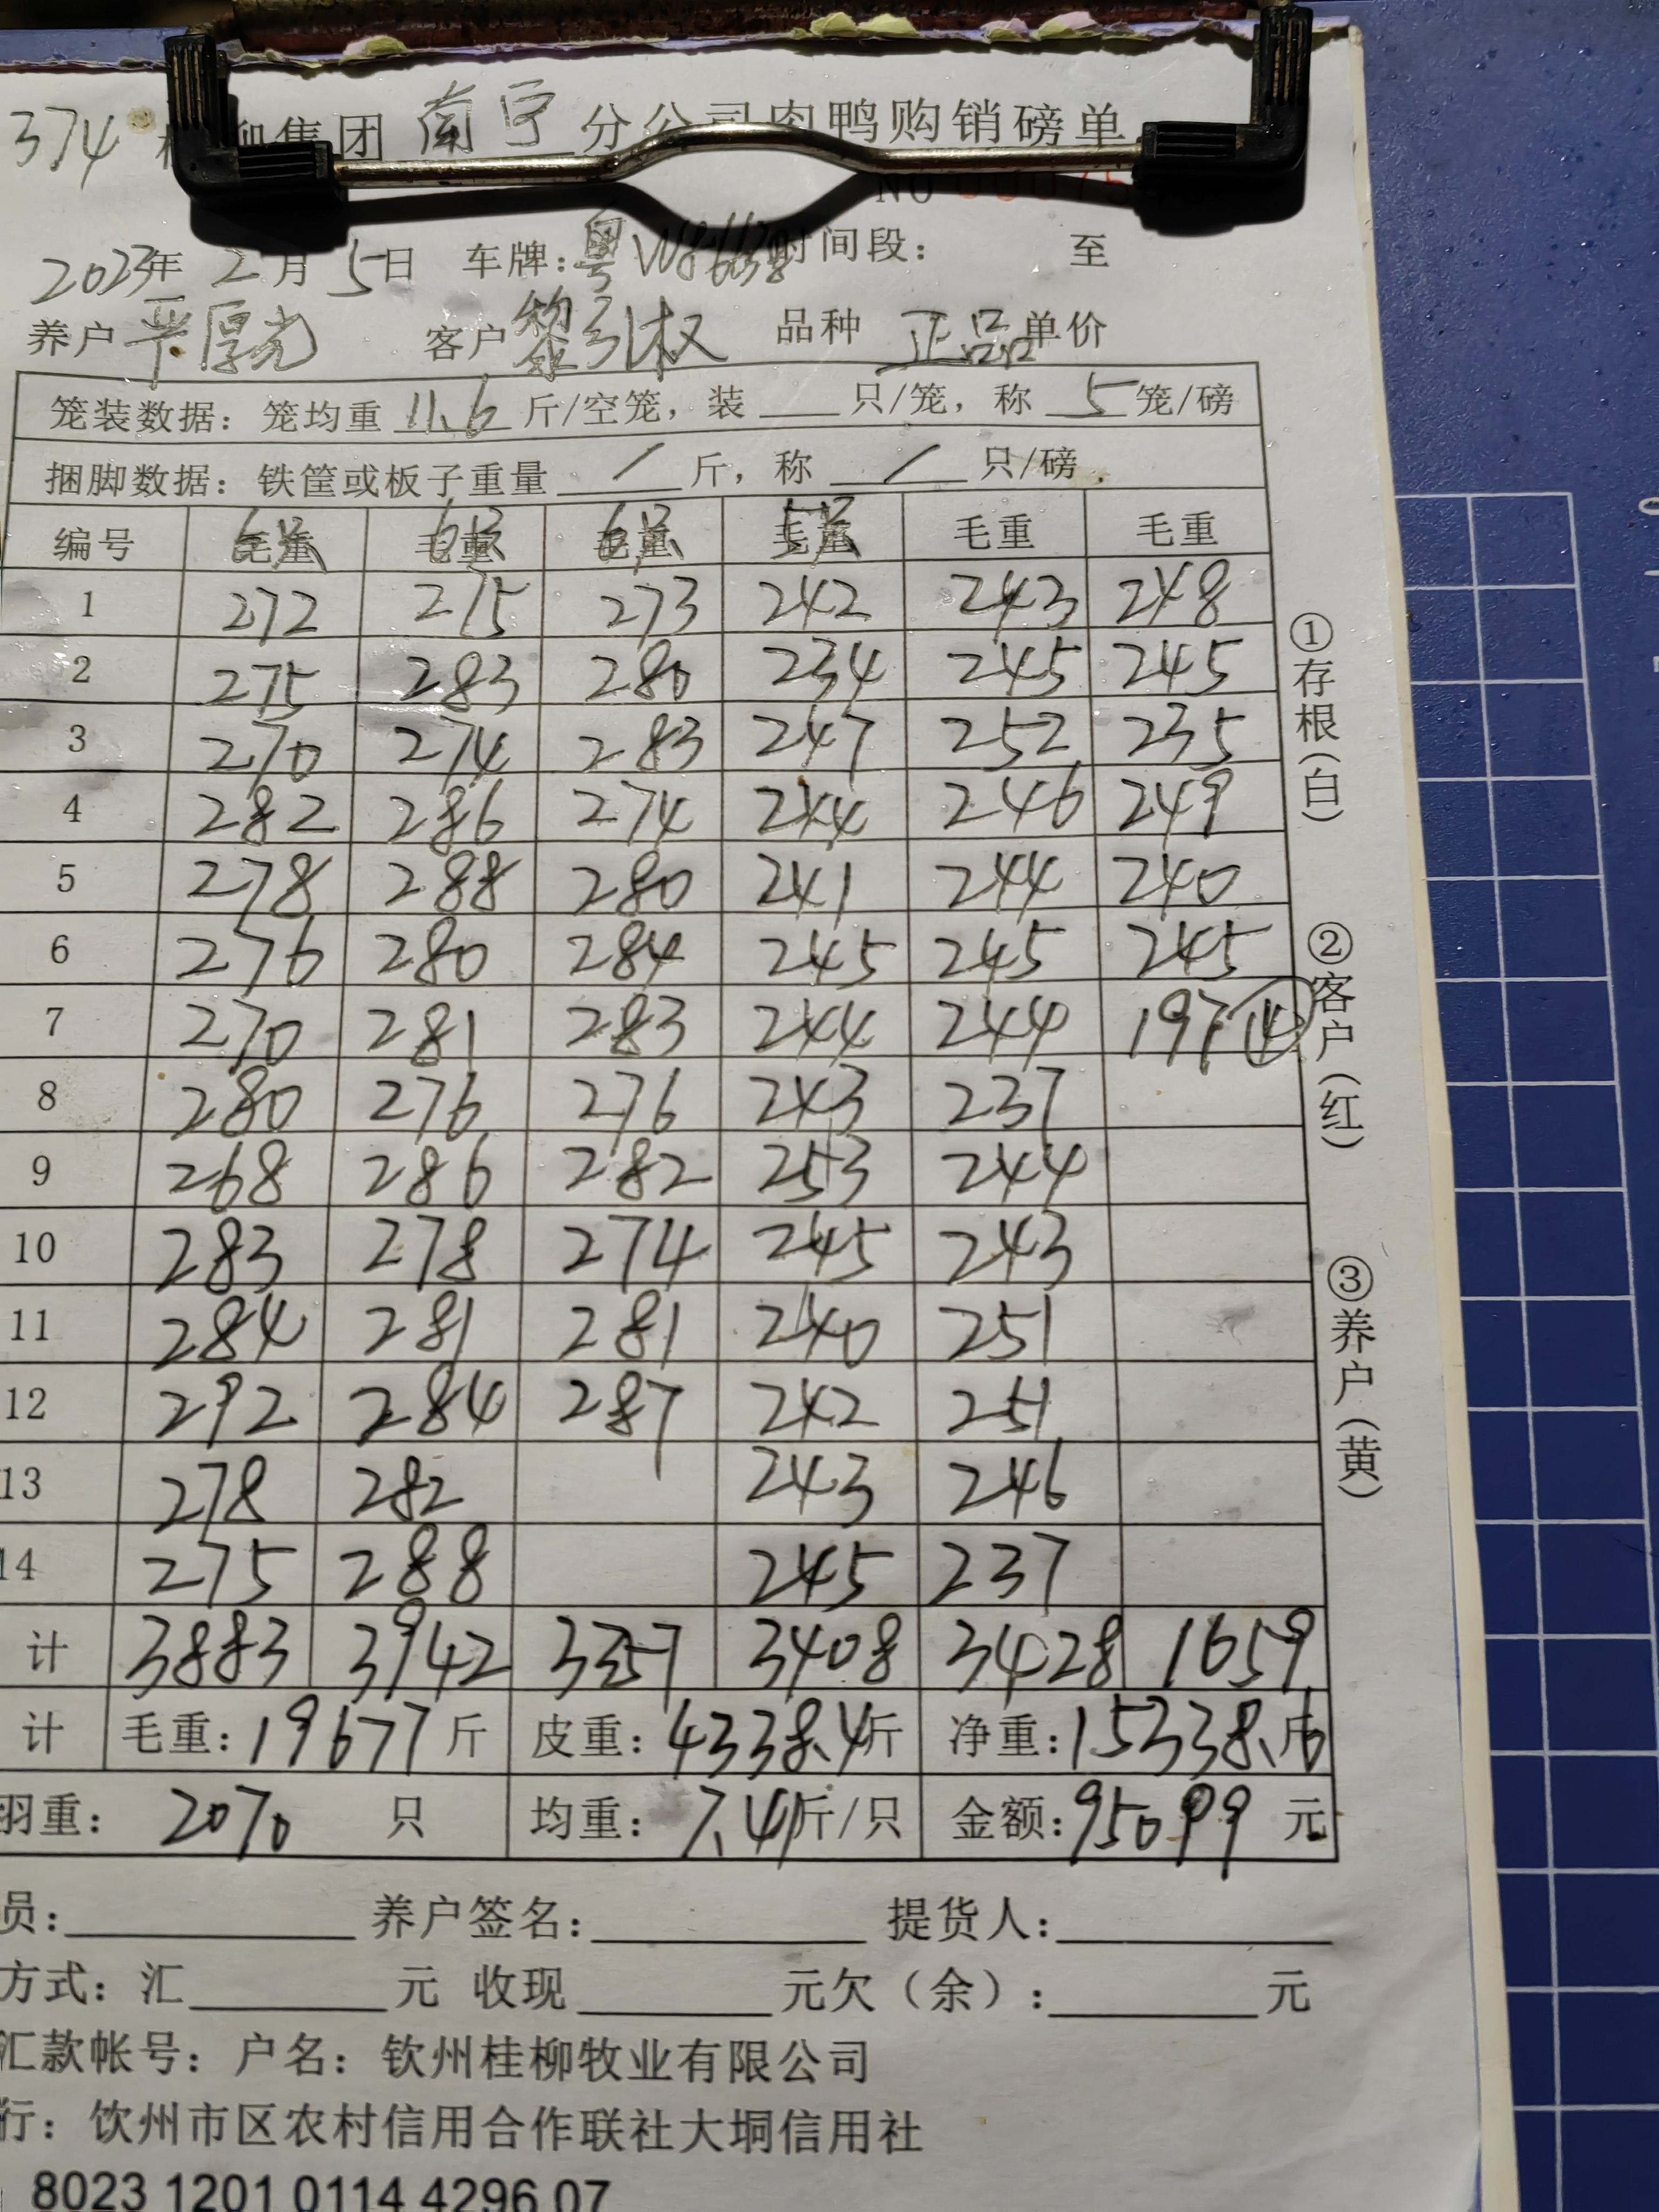 374 集团 南宁 分公司肉鸭购销磅单
NO
2023年 2月 5日 车牌:粤 时间段: 至
养户 严厚光 客户 黎引权 品种 正品 单价
笼装数据: 笼均重 11.6 斤/空笼, 装 只/笼, 称 5 笼/磅
捆脚数据: 铁筐或板子重量 / 斤, 称 / 只/磅
编号 毛重 毛重 毛重 毛重 毛重 毛重
1 272 275 273 242 243 248
2 275 283 280 234 245 245
3 270 274 283 247 252 235
4 282 286 274 244 246 249
5 278 288 280 241 244 240
6 276 280 284 245 245 245
7 270 281 283 244 244 197 ⑭
8 280 276 276 243 237
9 268 286 282 253 244
10 283 278 274 245 243
11 284 281 281 240 251
12 292 284 287 242 251
13 278 282 243 246
14 275 288 245 237
计 3883 3942 3357 3408 3428 1659
计 毛重: 19677 斤 皮重: 4338.4斤 净重: 15338.6斤
羽重: 2070 只 均重: 7.41斤/只 金额: 95099 元
员: 养户签名: 提货人:
方式: 汇 元 收现 元欠(余): 元
汇款帐号: 户名: 钦州桂柳牧业有限公司
行: 饮州市区农村信用合作联社大垌信用社
8023 1201 0114 4296 07
①存根(白)
②客户(红)
③养户(黄)